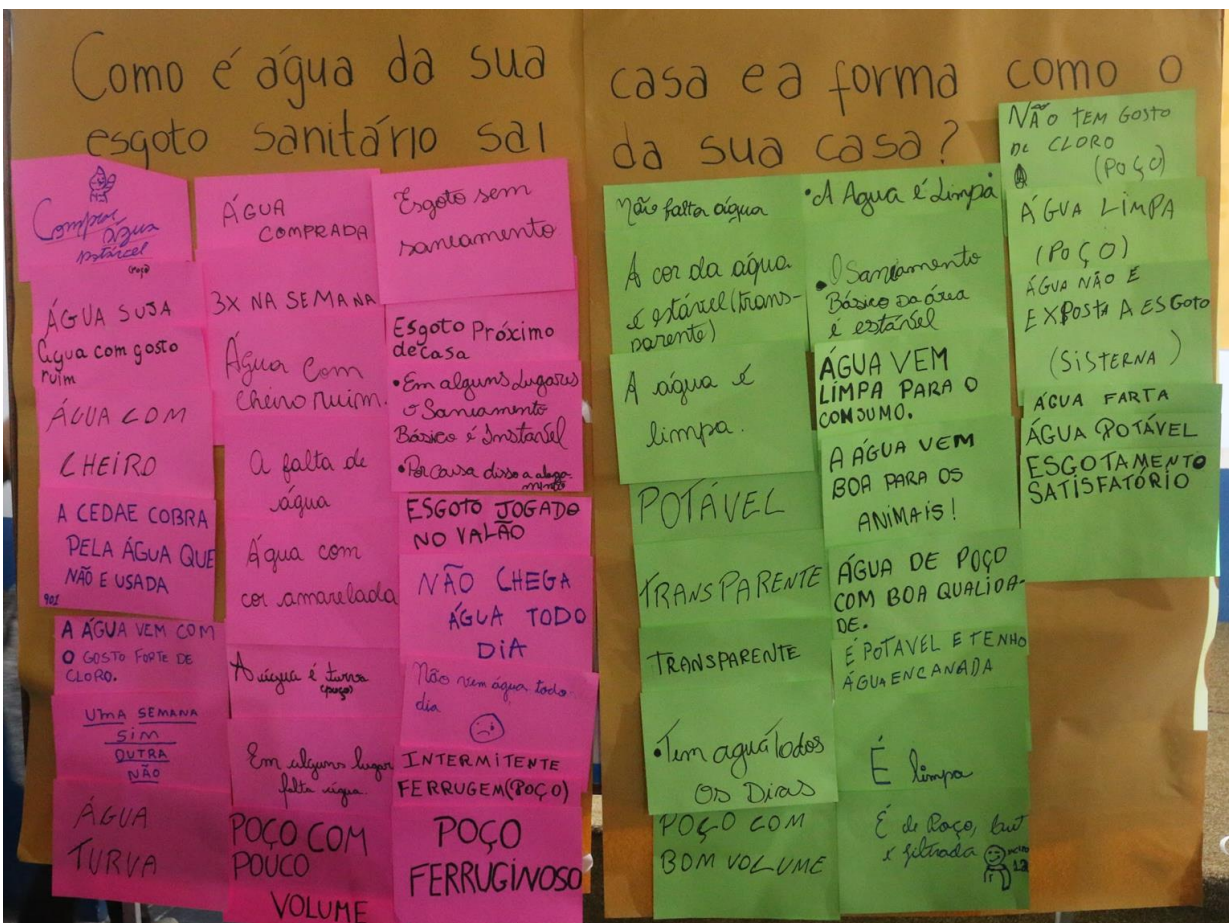 Como é água da sua casa e a forma como o
esgoto sanitário sai da sua casa?
Comprar
água
potável
(poço)
ÁGUA SUJA
água com gosto
ruim
ÁGUA COM
CHEIRO
A CEDAE COBRA
PELA ÁGUA QUE
NÃO E USADA
901
A ÁGUA VEM COM
O GOSTO FORTE DE
CLORO.
UMA SEMANA
SIM
OUTRA
NÃO
ÁGUA
TURVA
ÁGUA
COMPRADA
3X NA SEMANA
Água com
cheiro ruim.
A falta de
água
Água com
cor amarelada
A água é turva
(poço)
Em alguns lugar
falta água.
POÇO COM
POUCO
VOLUME
Esgoto sem
saneamento
Esgoto Próximo
de casa
• Em alguns Lugares
o Saneamento
Básico é Instavel
• Por causa disso a alaga-
mento
ESGOTO JOGADO
NO VALÃO
NÃO CHEGA
ÁGUA TODO
DIA
Não vem água todo
dia
INTERMITENTE
FERRUGEM (POÇO)
POÇO
FERRUGINOSO
Não falta água
A cor da água
é estável (trans-
parente)
A água é
limpa.
POTÁVEL
TRANSPARENTE
TRANSPARENTE
• Tem agua todos
Os Dias
POÇO COM
BOM VOLUME
• A Agua é Limpa
• O Saneamento
Básico Da área
é estável
ÁGUA VEM
LIMPA PARA O
CONSUMO.
A ÁGUA VEM
BOA PARA OS
ANIMAIS!
ÁGUA DE POÇO
COM BOA QUALIDA-
DE.
É POTAVEL E TENHO
ÁGUA ENCANADA
É limpa
É de Poço, but
é filtrada
NÃO TEM GOSTO
DE CLORO
(POÇO)
ÁGUA LIMPA
(POÇO)
ÁGUA NÃO E
EXPOSTA A ESGOTO
(SISTERNA)
ÁGUA FARTA
ÁGUA POTÁVEL
ESGOTAMENTO
SATISFATÓRIO